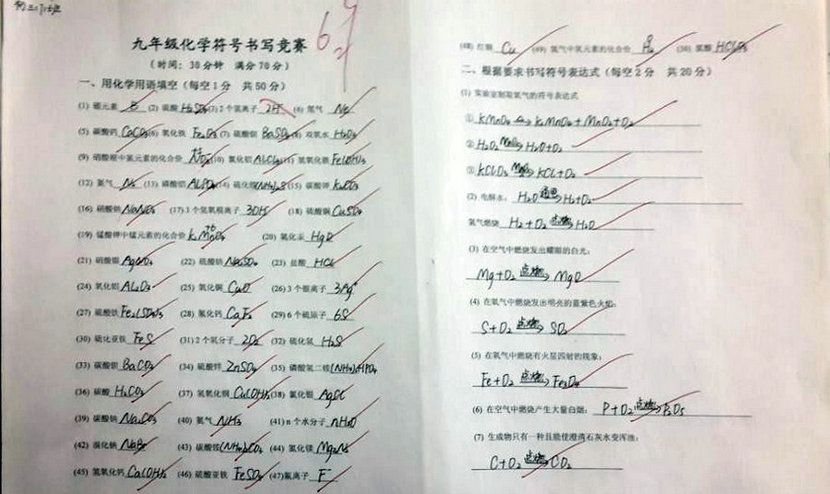 初三八班
九年级化学符号书写竞赛 67
(时间:30分钟 满分70分)
一、用化学用语填空(每空1分 共50分)
(1) 硼元素 B (2) 硫酸 H₂SO₄ (3) 2个氢离子 2H (4) 氖气 Ne
(5) 碳酸钙 CaCO₃ (6) 氧化铁 Fe₂O₃ (7) 硫酸钡 BaSO₄ (8) 双氧水 H₂O₂
(9) 硝酸根中氮元素的化合价 NO₃ (10) 氯化铝 AlCl₃ (11) 氢氧化铁 Fe(OH)₃
(12) 氮气 N₂ (13) 磷酸铝 AlPO₄ (14) 硫化铵 (NH₄)₂S (15) 碳酸钾 K₂CO₃
(16) 硝酸钠 NaNO₃ (17) 3个氢氧根离子 3OH⁻ (18) 硫酸铜 CuSO₄
(19) 锰酸钾中锰元素的化合价 K₂MnO₄ (20) 氧化汞 HgO
(21) 硝酸银 AgNO₃ (22) 硫酸钠 Na₂SO₄ (23) 盐酸 HCl
(24) 氧化铝 Al₂O₃ (25) 氧化铜 CuO (26) 3个银离子 3Ag⁺
(27) 硫酸铁 Fe₂(SO₄)₃ (28) 氟化钙 CaF₂ (29) 6个硫原子 6S
(30) 硫化亚铁 FeS (31) 2个氧分子 2O₂ (32) 硫化氢 H₂S
(33) 碳酸钡 BaCO₃ (34) 硫酸锌 ZnSO₄ (35) 磷酸氢二铵 (NH₄)₂HPO₄
(36) 碳酸 H₂CO₃ (37) 氢氧化铜 Cu(OH)₂ (38) 氯化银 AgCl
(39) 碳酸钠 Na₂CO₃ (40) 氨气 NH₃ (41) n个水分子 nH₂O
(42) 溴化钠 NaBr (43) 碳酸铵 (NH₄)₂CO₃ (44) 氮化镁 Mg₃N₂
(45) 氢氧化钙 Ca(OH)₂ (46) 硫酸亚铁 FeSO₄ (47) 氟离子 F⁻
(48) 红铜 Cu (49) 氢气中氢元素的化合价 H₂ (50) 氯酸 HClO₃
二、根据要求书写符号表达式(每空2分 共20分)
(1) 实验室制取氧气的符号表达式
① KMnO₄ △→ K₂MnO₄ + MnO₂ + O₂
② H₂O₂ MnO₂→ H₂O + O₂
③ KClO₃ MnO₂→ KCl + O₂
(2) 电解水: H₂O 通电→ H₂ + O₂
氢气燃烧 H₂ + O₂ 点燃→ H₂O
(3) 在空气中燃烧发出耀眼的白光:
Mg + O₂ 点燃→ MgO
(4) 在氧气中燃烧发出明亮的蓝紫色火焰:
S + O₂ 点燃→ SO₂
(5) 在氧气中燃烧有火星四射的现象:
Fe + O₂ 点燃→ Fe₃O₄
(6) 在空气中燃烧产生大量白烟: P + O₂ 点燃→ P₂O₅
(7) 生成物只有一种且能使澄清石灰水变浑浊:
C + O₂ 点燃→ CO₂